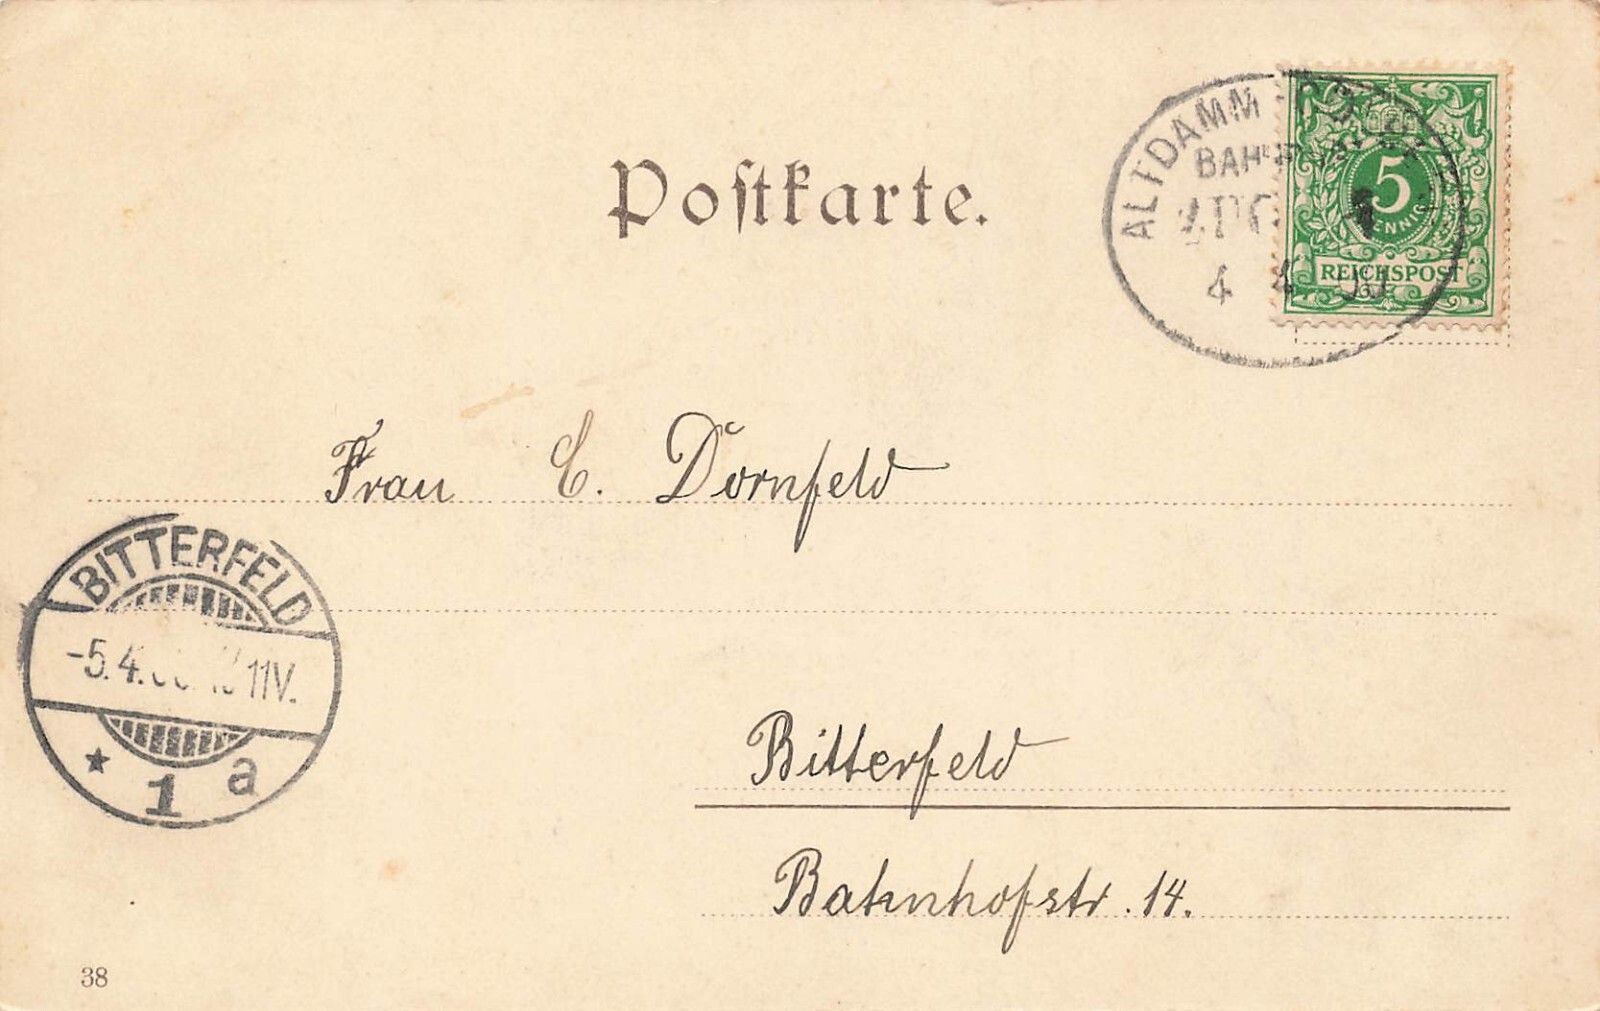 Postkarte.
ALTDAMM
5
PFENNIG
REICHSPOST
4 4
Frau C. Dornfeld
BITTERFELD
-5.4. 11V.
* 1 a
Bitterfeld
Bahnhofstr. 14.
38